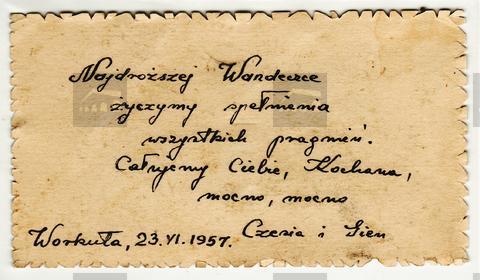 Najdroższej Wandeczce
życzymy spełnienia
wszystkich pragnień.
Całujemy Ciebie, Kochana,
mocno, mocno
Czesia i Gien
Workuta, 23.VI.1957.